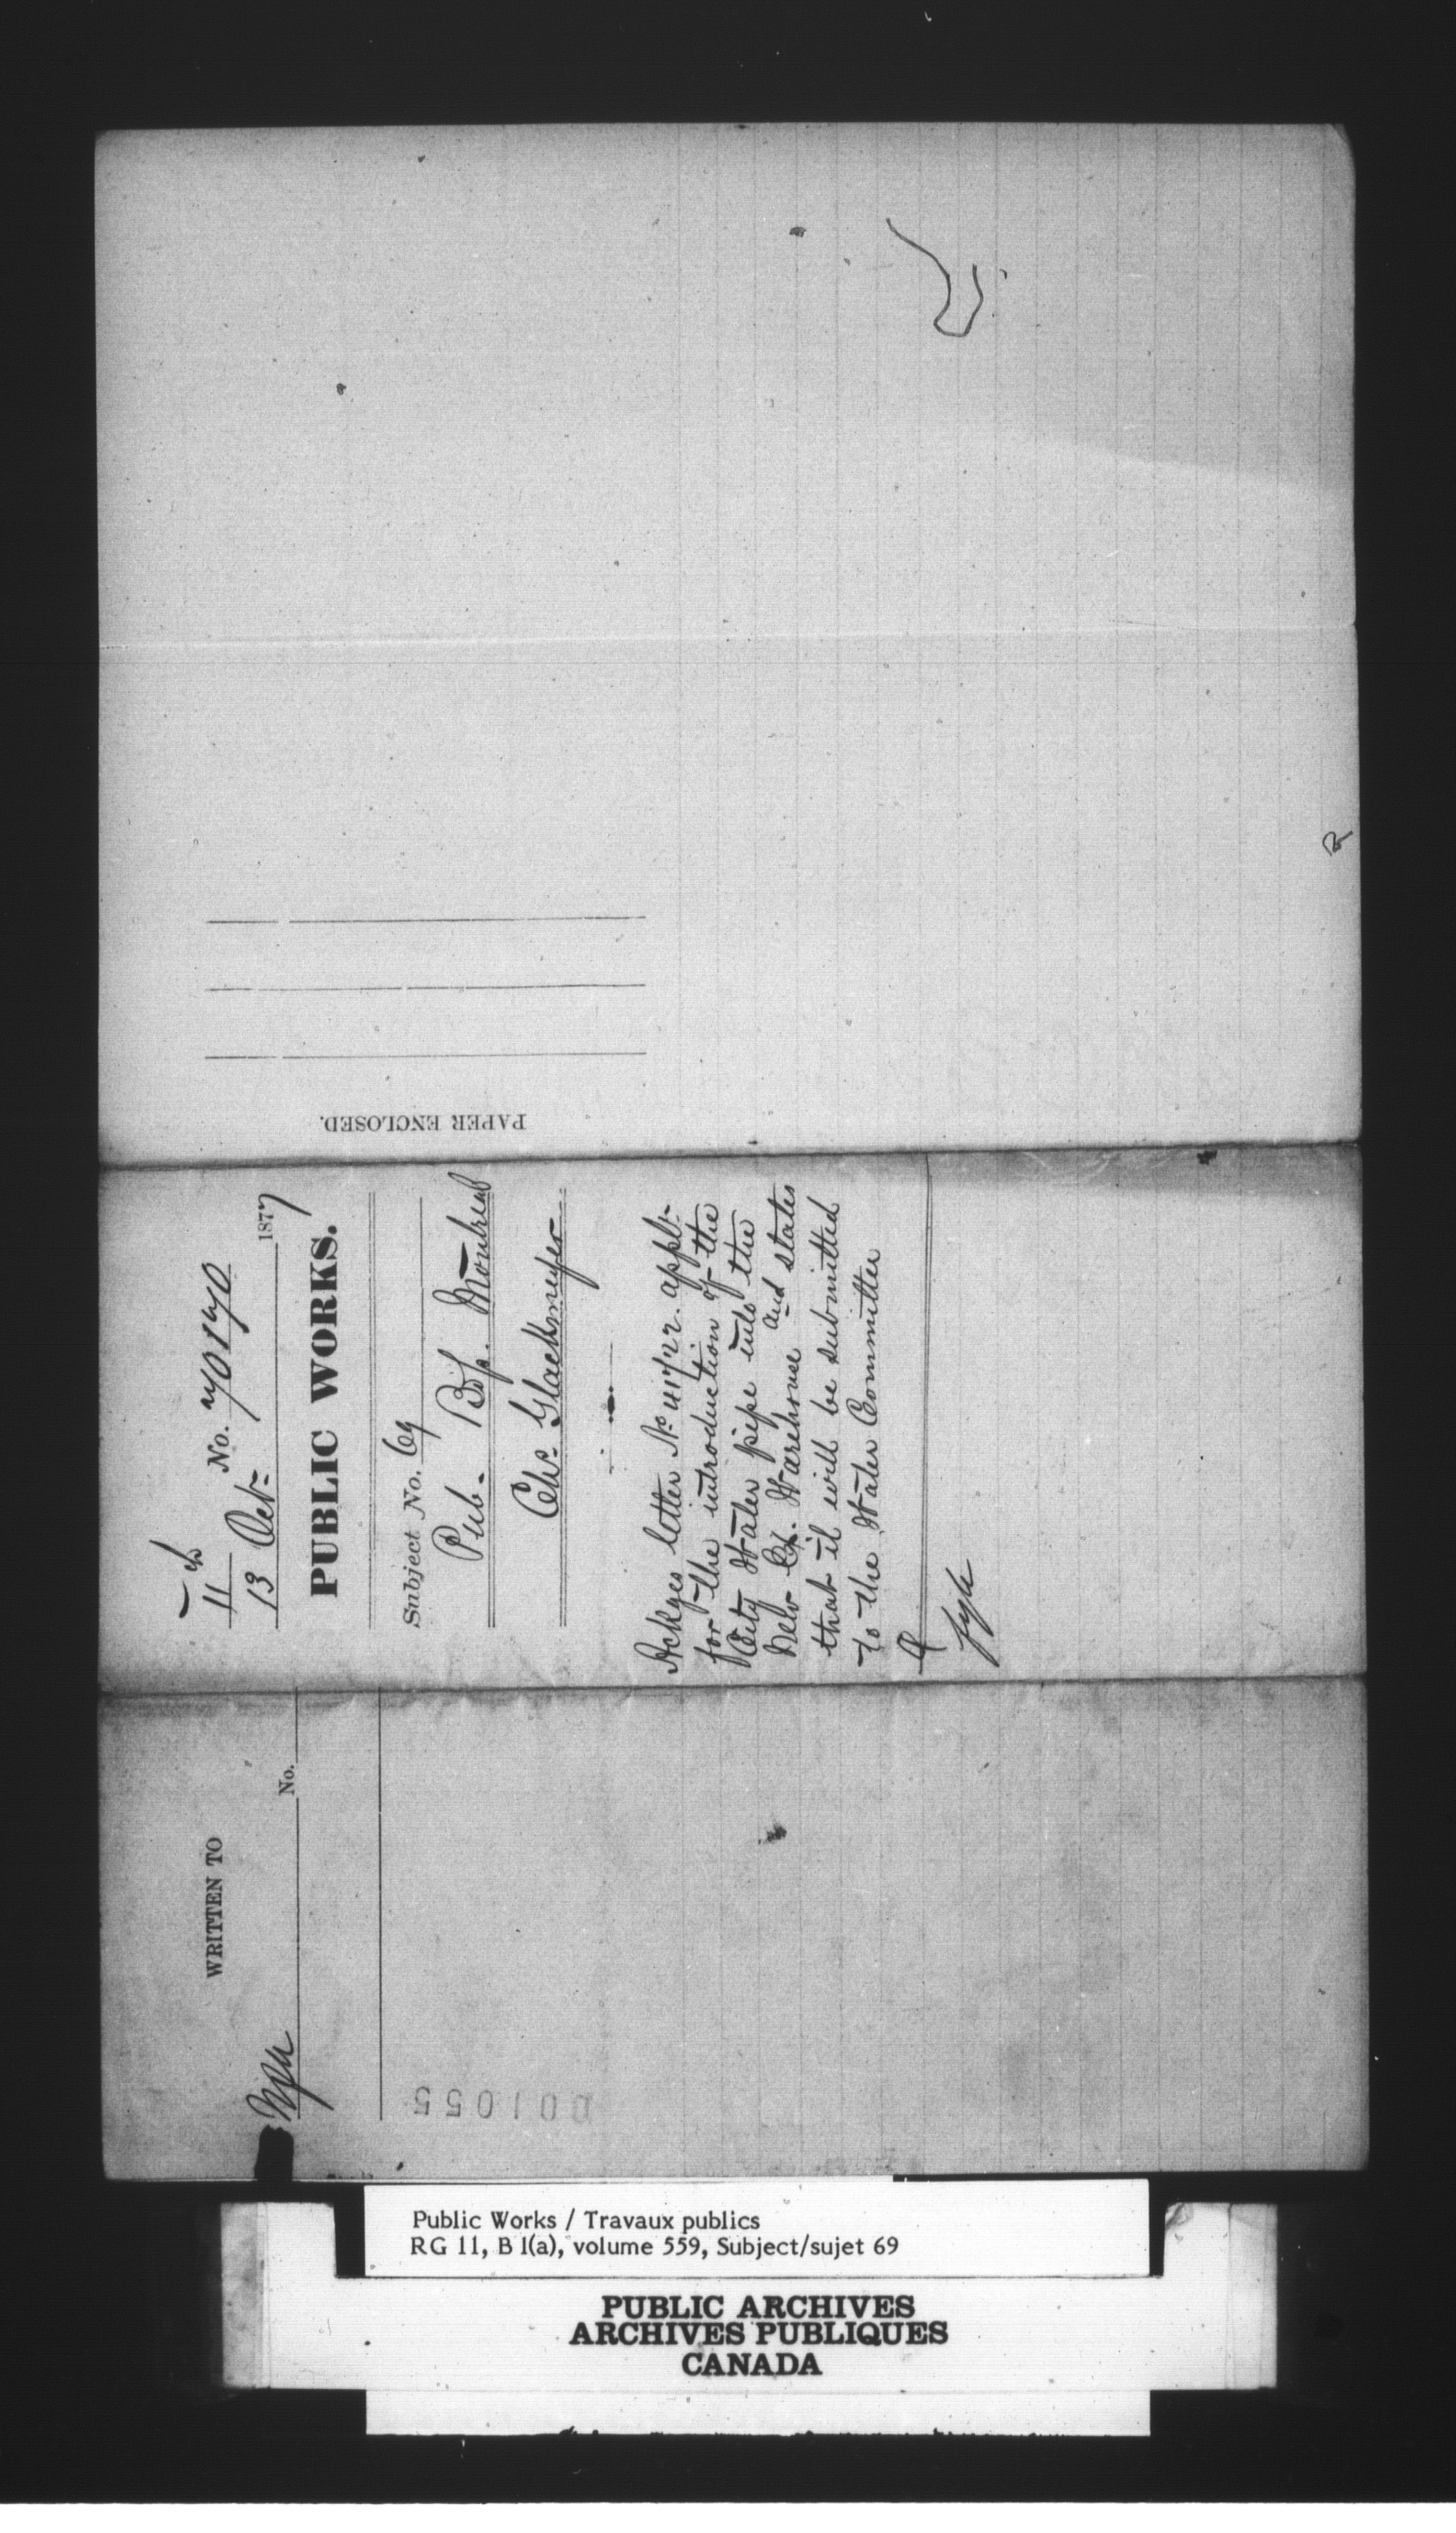 PAPER ENCLOSED.
11
13 Oct- No. 70170 1877
PUBLIC WORKS.
Subject No. 69
Pub. Bgs. Montreal
Chs. Glackmeyer
Ackges letter No 41722. appl-
for the introduction of the
City Water pipe into the
New Ex. Warehouse and states
that it will be submitted
to the Water Committee
WRITTEN TO
No.
001055
Public Works / Travaux publics
RG 11, B 1(a), volume 559, Subject/sujet 69
PUBLIC ARCHIVES
ARCHIVES PUBLIQUES
CANADA